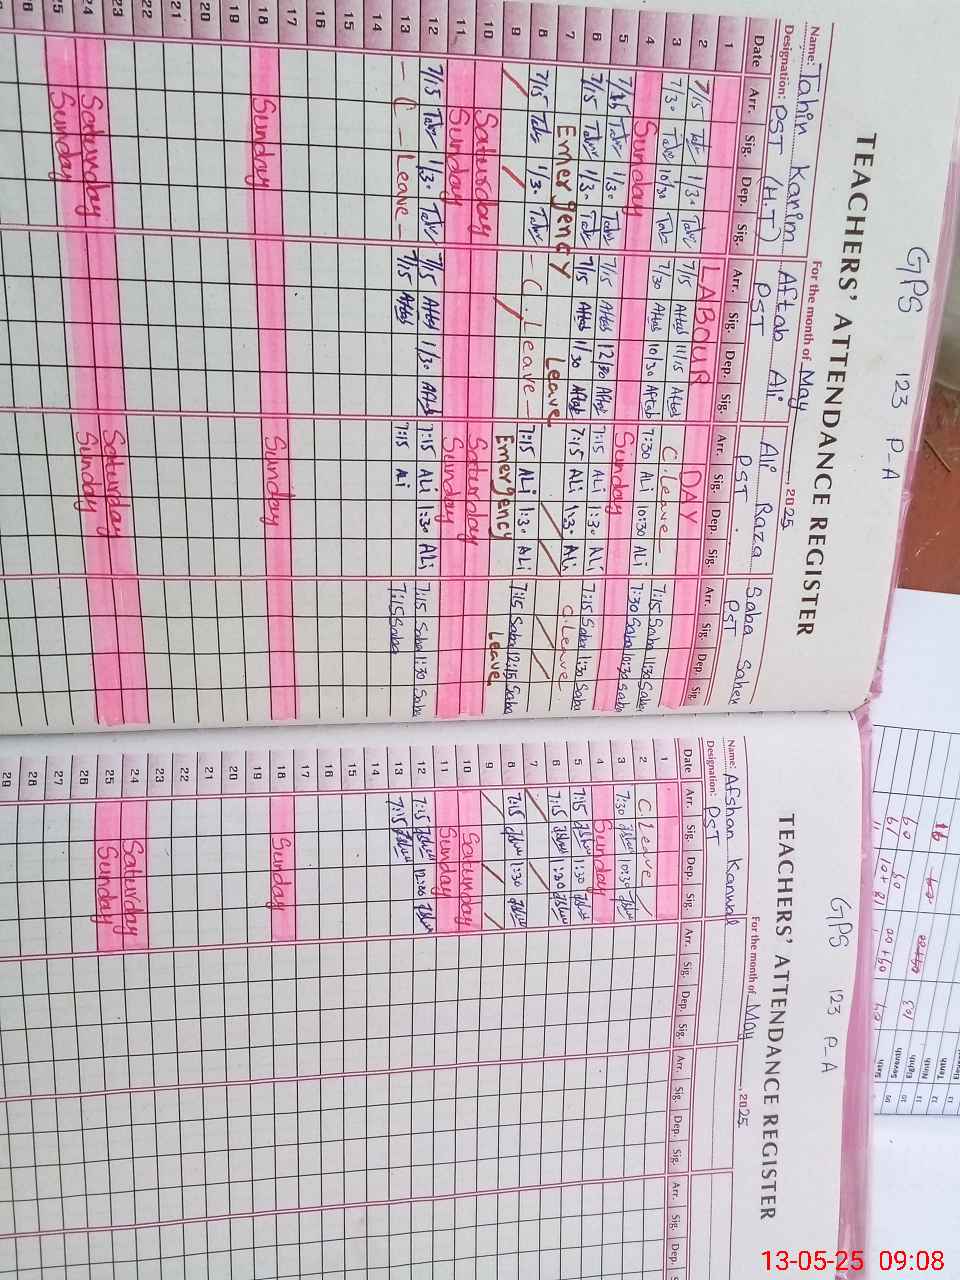 GPS 123 P-A
TEACHERS' ATTENDANCE REGISTER
For the month of May, 2025
Name: Tahir Karim Aftab Ali Ali Raza Saba Saher
Designation: PST (H.T) PST PST PST
Date Arr. Sig. Dep. Sig. Arr. Sig. Dep. Sig. Arr. Sig. Dep. Sig. Arr. Sig. Dep. Sig.
1 LABOUR DAY
2 7/15 1/30 7/15 Aftab 11/15 Aftab C.Leave 7:15 Saba 1:30 Saba
3 7/30 10/30 7/30 Aftab 10/30 Aftab 7:30 ALi 10:30 ALi 7:30 Saba 10:30 Saba
4 Sunday Sunday
5 7/15 1/30 7/15 Aftab 12/30 Aftab 7:15 ALi 1:30 ALi 7:15 Saba 1:30 Saba
6 7/15 1/30 7/15 Aftab 1/30 Aftab 7:15 ALi 1:30 ALi C.Leave
7 Emergency Leave
8 7/15 1/30 C.Leave 7:15 ALi 1:30 ALi 7:15 Saba 12:15 Saba
9 Emergency Leave
10 Saturday Saturday
11 Sunday Sunday
12 7/15 1/30 7/15 Aftab 1/30 Aftab 7:15 ALi 1:30 ALi 7:15 Saba 1:30 Saba
13 C-Leave 7/15 Aftab 7:15 ALi 7:15 Saba
14
15
16
17
18 Sunday Sunday
19
20
21
22
23
24 Saturday Saturday
25 Sunday Sunday
26
GPS 123 P-A
TEACHERS' ATTENDANCE REGISTER
For the month of May, 2025.
Name: Afshan Kanwal
Designation: PST
Date Arr. Sig. Dep. Sig. Arr. Sig. Dep. Sig. Arr. Sig. Dep. Sig. Arr. Sig. Dep.
1
2 C.Leave
3 7:30 10:30
4 Sunday
5 7:15 1:30
6 7:15 1:30
7
8 7:15 1:30
9
10 Saturday
11 Sunday
12 7:15 12:00
13 7:15
14
15
16
17
18 Sunday
19
20
21
22
23
24 Saturday
25 Sunday
26
27
28
29
13-05-25 09:08